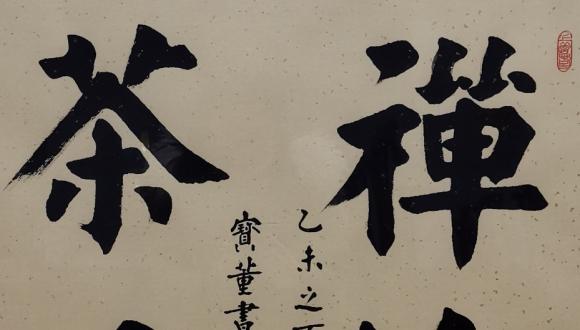 禪
茶
乙未之
寶董書